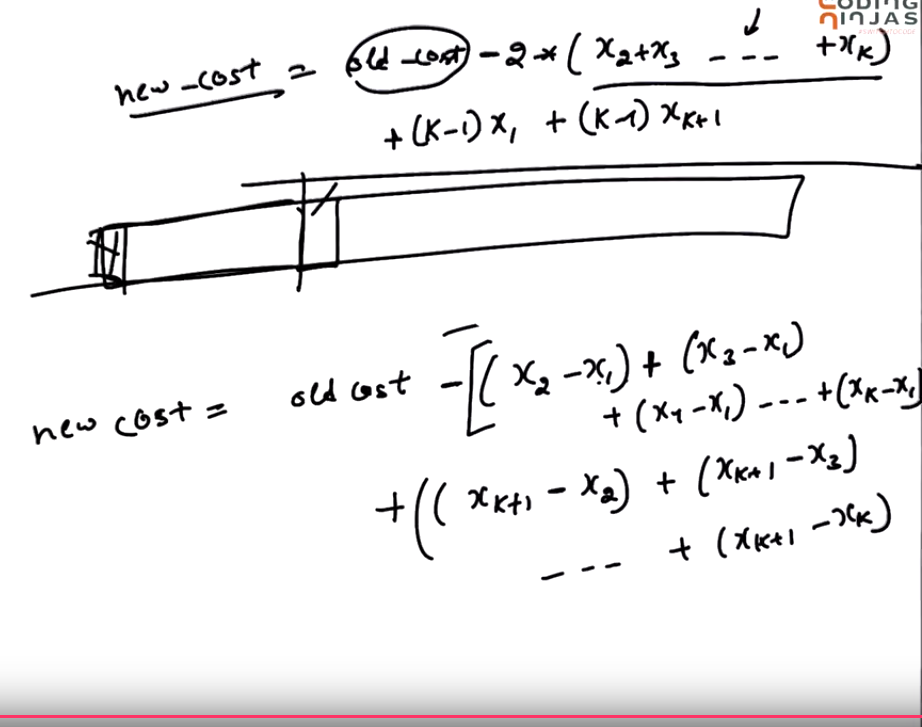 CODING
NINJAS
new_cost = old_cost - 2 * ( x₂+x₃ --- +x_K)
+ (K-1) x₁ + (K-1) x_K+1
new cost = old cost - [( x₂ - x₁) + (x₃ - x₁)
+ (x₄ - x₁) --- + (x_K - x₁)
+ (( x_K+1 - x₂) + (x_K+1 - x₃)
--- + (x_K+1 - x_K)